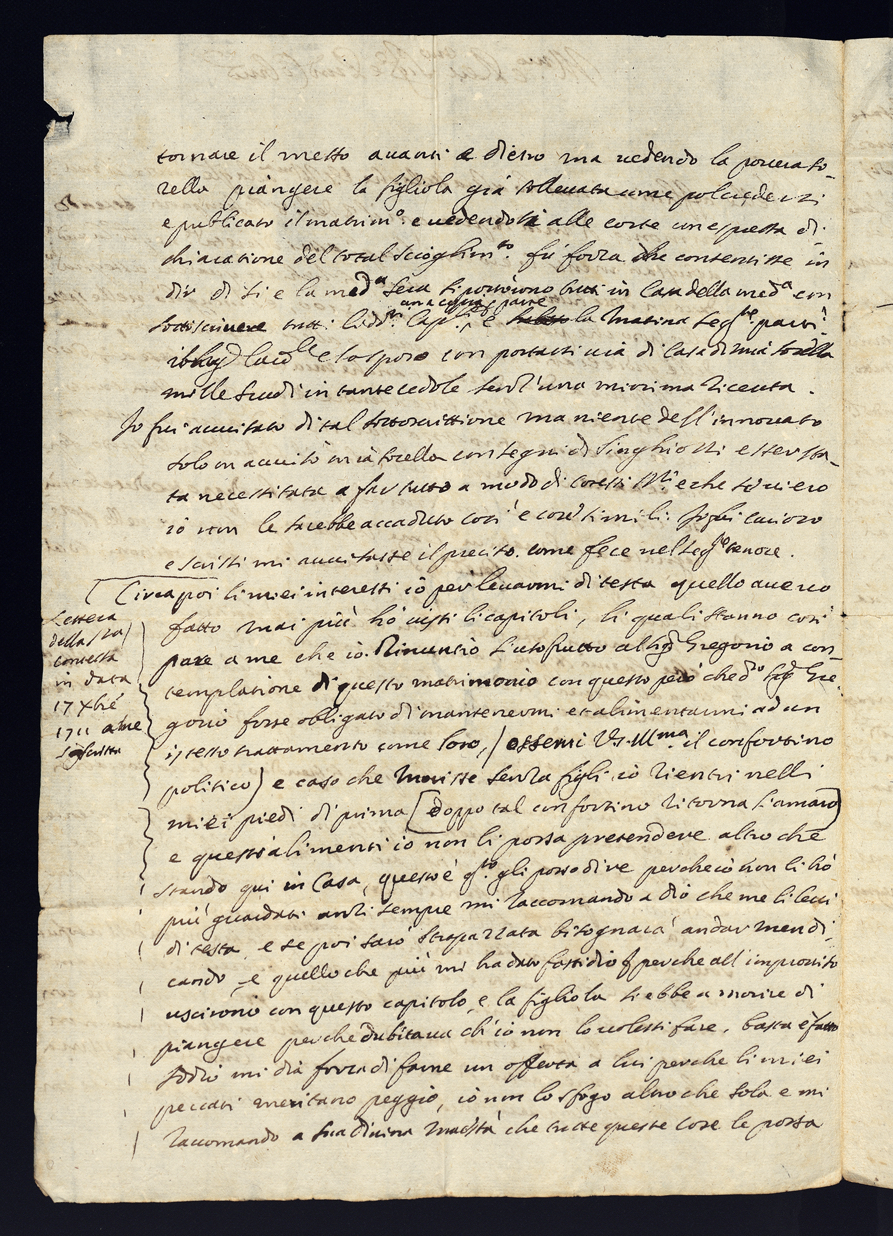 tornare il messo avanti e dietro ma vedendo la poverato-
rella piangere la figliola già sollevata come
e publicato il matrim.o e vedendola alle corte con espressa di-
chiaratione del total scioglim.to fù forza che consentisse in
dir di si e la med.a sera si portorono tutti in Casa della med.a con
ancora
sottoscrivere tutti li dd.i Cap.li e la matina seg.te partì
e la sposò con portarsi via di Casa di mia sorella
mille scudi in tante cedole senz'una minima ricevuta.
Io fui avvisato di tal sottoscrittione ma niente dell'innovato
solo m'avvisò mia sorella con segni di singhiozzi esser sta-
ta necessitata a far tutto a modo di cotesti SS.ri e che se v'ero
io non le sarebbe accaduto così e cose simili:
e scrissi mi avvisasse il preciso, come fece nel seg.te tenore.
Circa poi li miei interessi io per levarmi di testa quello avevo
fatto mai più hò visti li capitoli, li quali stanno così
pare a me che io Rinuntio l'usofrutto al Sig.r Gregorio a con-
templatione di questo matrimonio con questo però che d.o Sig.r Gre-
gorio fosse obligato di mantenermi et alimentarmi ad un
istesso trattamento come loro, (essemi V.S. Ill.ma il confortino
politico) e caso che morisse senza figli io rientri nelli
miei piedi di prima [doppo tal confortino ritorna l'amaro]
e questi alimenti io non li possa pretendere altro che
stando qui in Casa, questo è q.to gli posso dire perche io non li hò
più guardati anzi sempre mi raccomando a Dio che me li levi
di testa, e se poi sarò strapazzata bisognarà andar mendi-
cando, e quello che più mi ha dato fastidio perche all'improviso
uscirono con questo capitolo, e la figliola si ebbe a morire di
piangere perche dubitava ch'io non lo volessi fare, basta è fatto
Iddio mi dia forza di farne un offerta a lui perche li miei
peccati meritano peggio, io non lo sfogo altro che sola e mi
raccomando a sua divina Maestà che tutte queste cose le possa
Lettera
della
contessa
in data
17 Xbre
1711 a me